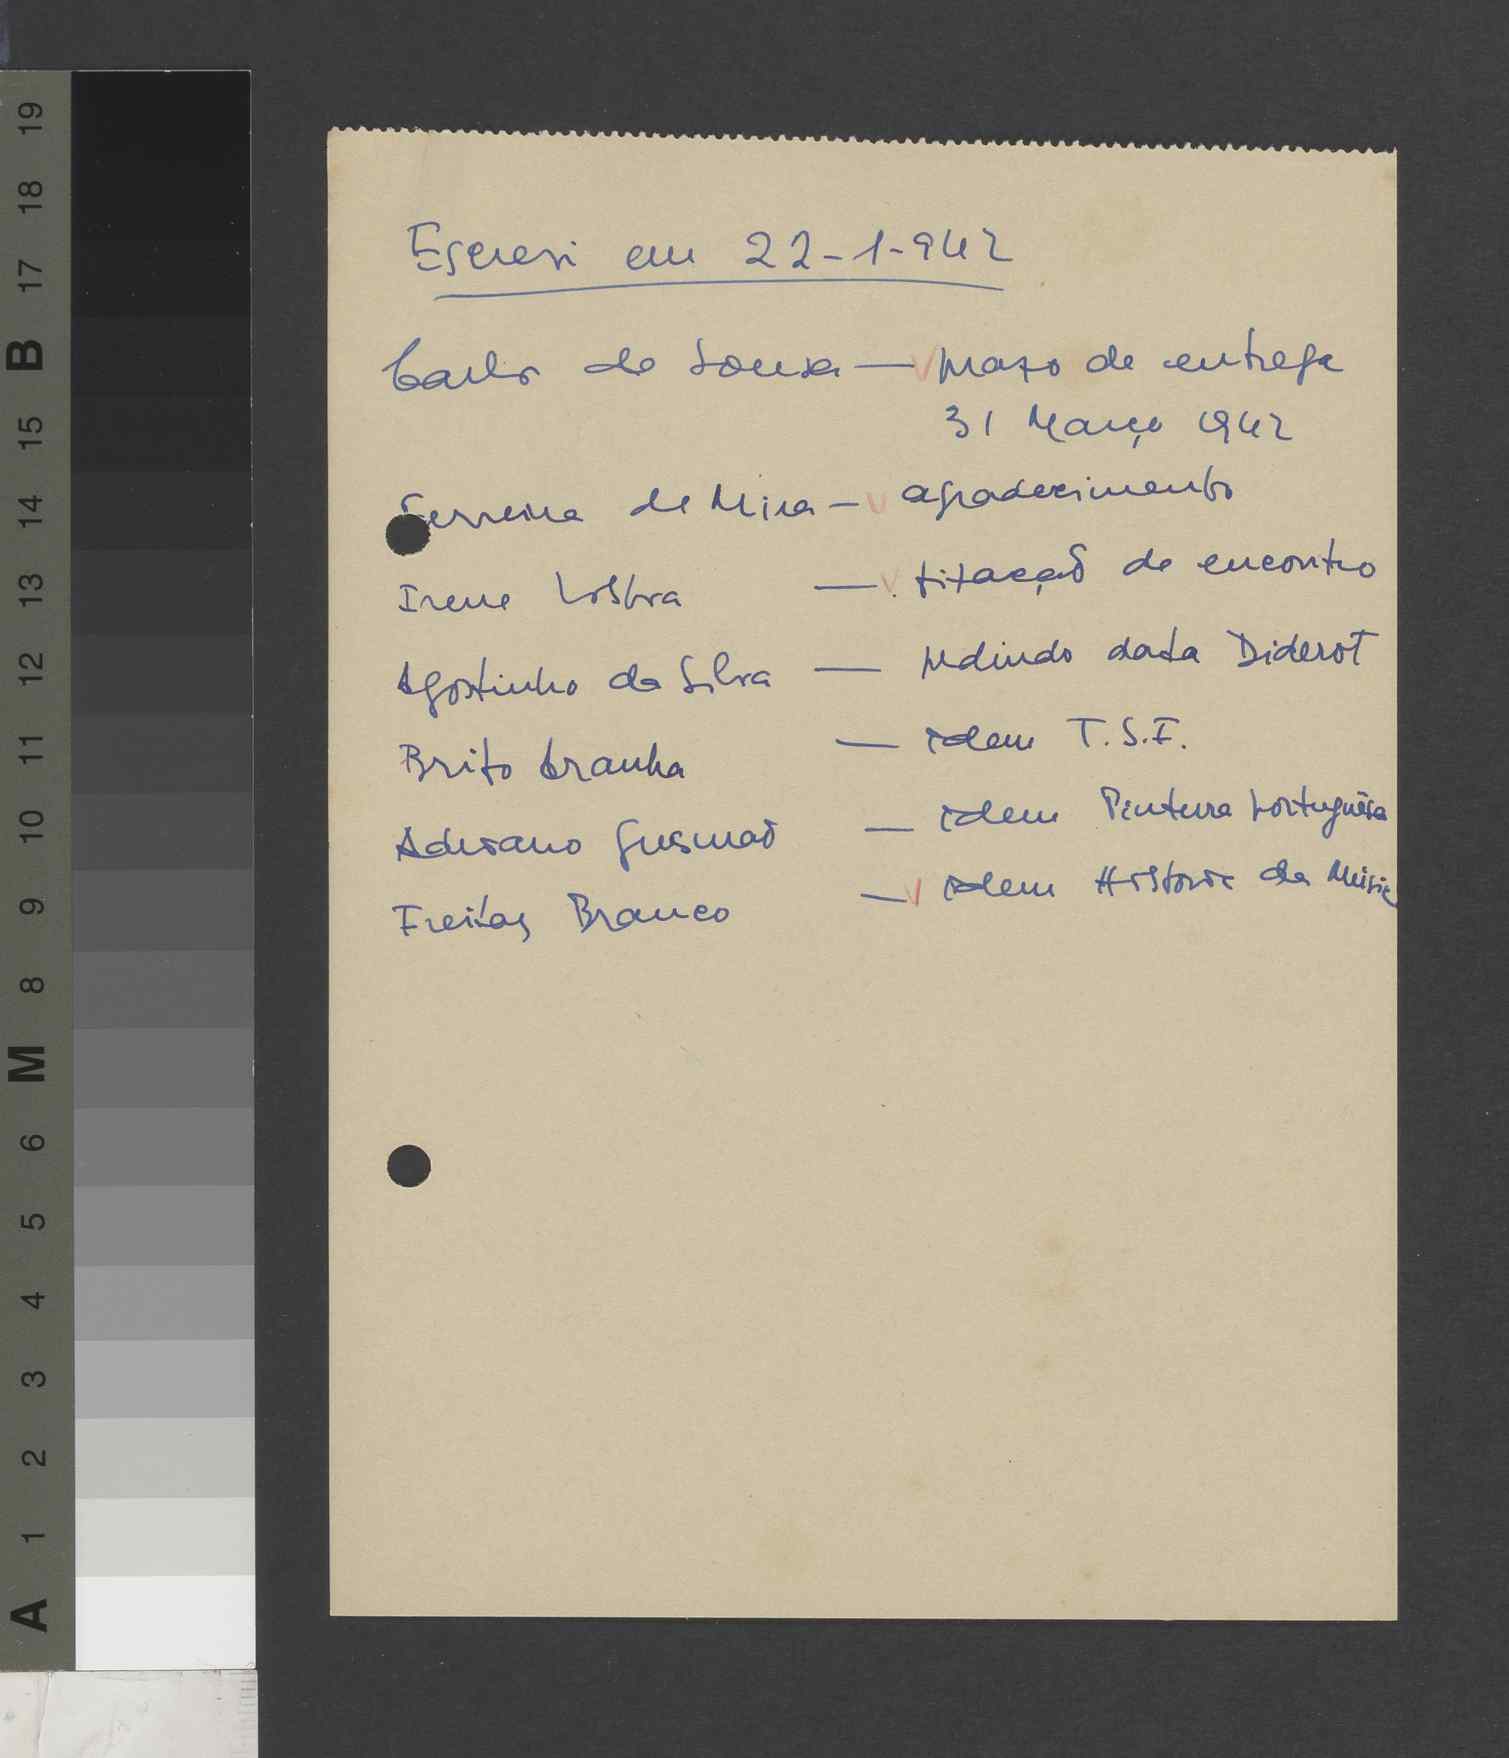 Escrevi em 22-1-942
Carlos de Sousa — prazo de entrega
31 Março 1942
Ferreira de Mira — agradecimento
Irene Lisboa — fixação de encontro
Agostinho da Silva — pedindo data Diderot
Brito Aranha — idem T.S.F.
Adriano Gusmão — idem Pintura Portuguêsa
Freitas Branco — idem História da Música
19
18
17
B
15
14
13
12
11
10
9
8
M
6
5
4
3
2
1
A